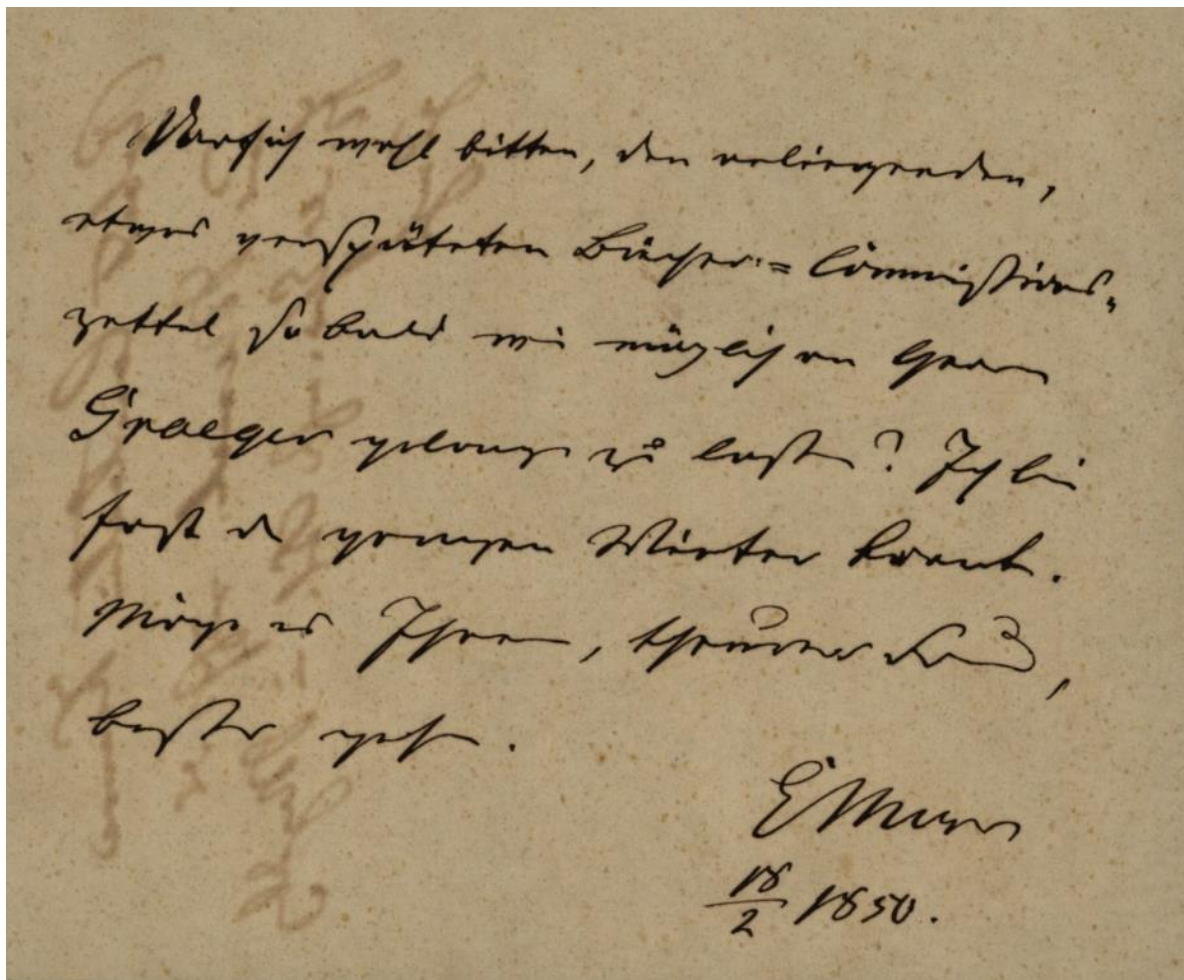 Darf ich wohl bitten, den anliegenden,
etwas verspäteten Bücher-Commissions-
zettel so bald wie möglich an Herrn
Graeger gelangen zu lassen? Ich bin
fast den ganzen Winter krank.
Möge es Ihnen, theurer Freund,
besser gehen.
E Meyer
18/2 1850.